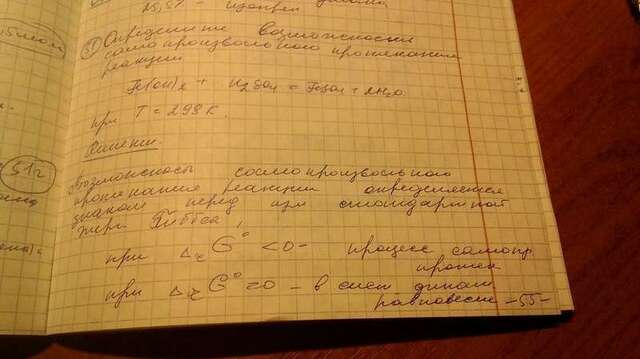 25,5% - изопрен
51 Определите возможность
самопроизвольного протекания
реакции
Fe(OH)2 + H2SO4 = FeSO4 + 2H2O
при T = 298 K.
Решение.
Возможность самопроизвольного
протекания реакции определяется
знаком перед изм стандартной
энерг Гиббса!
при ΔrG° < 0 - процесс самопр.
протек
при ΔrG° = 0 - в сист динам
равновесие -55-
51г